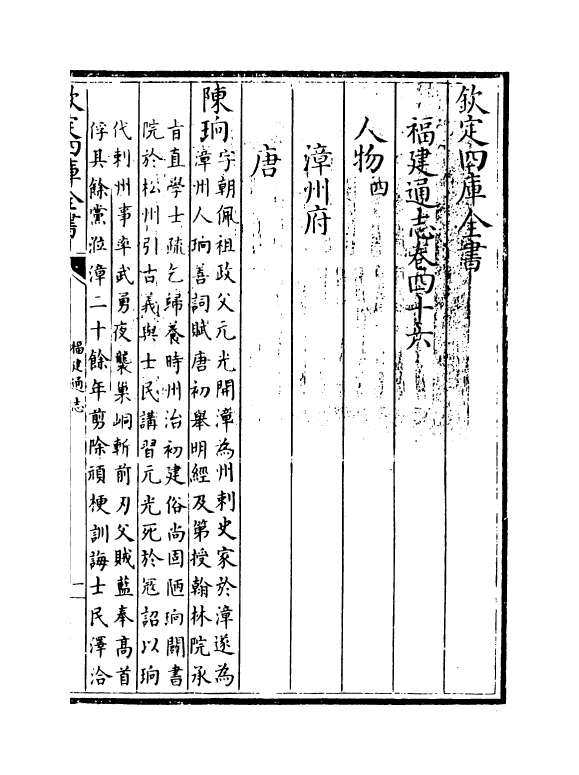 欽定四庫全書
福建通志卷四十六
人物四
漳州府
唐
陳珦字朝佩祖政父元光開漳為州刺史家於漳遂為
漳州人珦善詞賦唐初舉明經及第授翰林院承
旨直學士疏乞歸養時州治初建俗尚固陋珦闢書
院於松州引古義與士民講習元光死於寇詔以珦
代刺州事率武勇夜襲巢峒斬前刃父賊藍奉高首
俘其餘黨涖漳二十餘年剪除頑梗訓誨士民澤洽
欽定四庫全書
福建通志
一